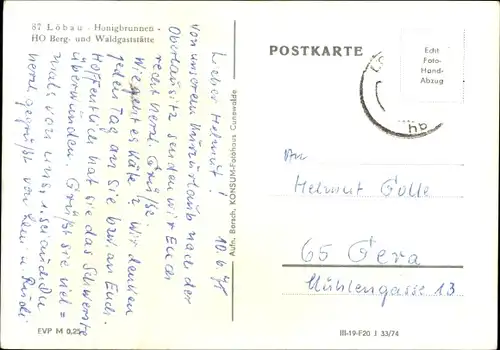 87 Löbau - Honigbrunnen -
HO Berg- und Waldgaststätte
Lieber Helmut! 10.6.75
Von unserem Kurzurlaub nach der
Oberlausitz senden wir Euch
recht herzl. Grüße.
Wie geht es Käte? Wir denken
jeden Tag an sie bzw. an Euch.
Hoffentlich hat sie das Schwerste
überwunden. Grüßt sie viel=
mals von uns. Sei auch Du
herzl. gegrüßt von u. Heidi
EVP M 0,25
Aufn. Bersch, KONSUM-Fotohaus Cunewalde
POSTKARTE
Echt
Foto-
Hand-
Abzug
An
Helmut Golle
65 Gera
Mühlengasse 13
III-19-F20 J 33/74